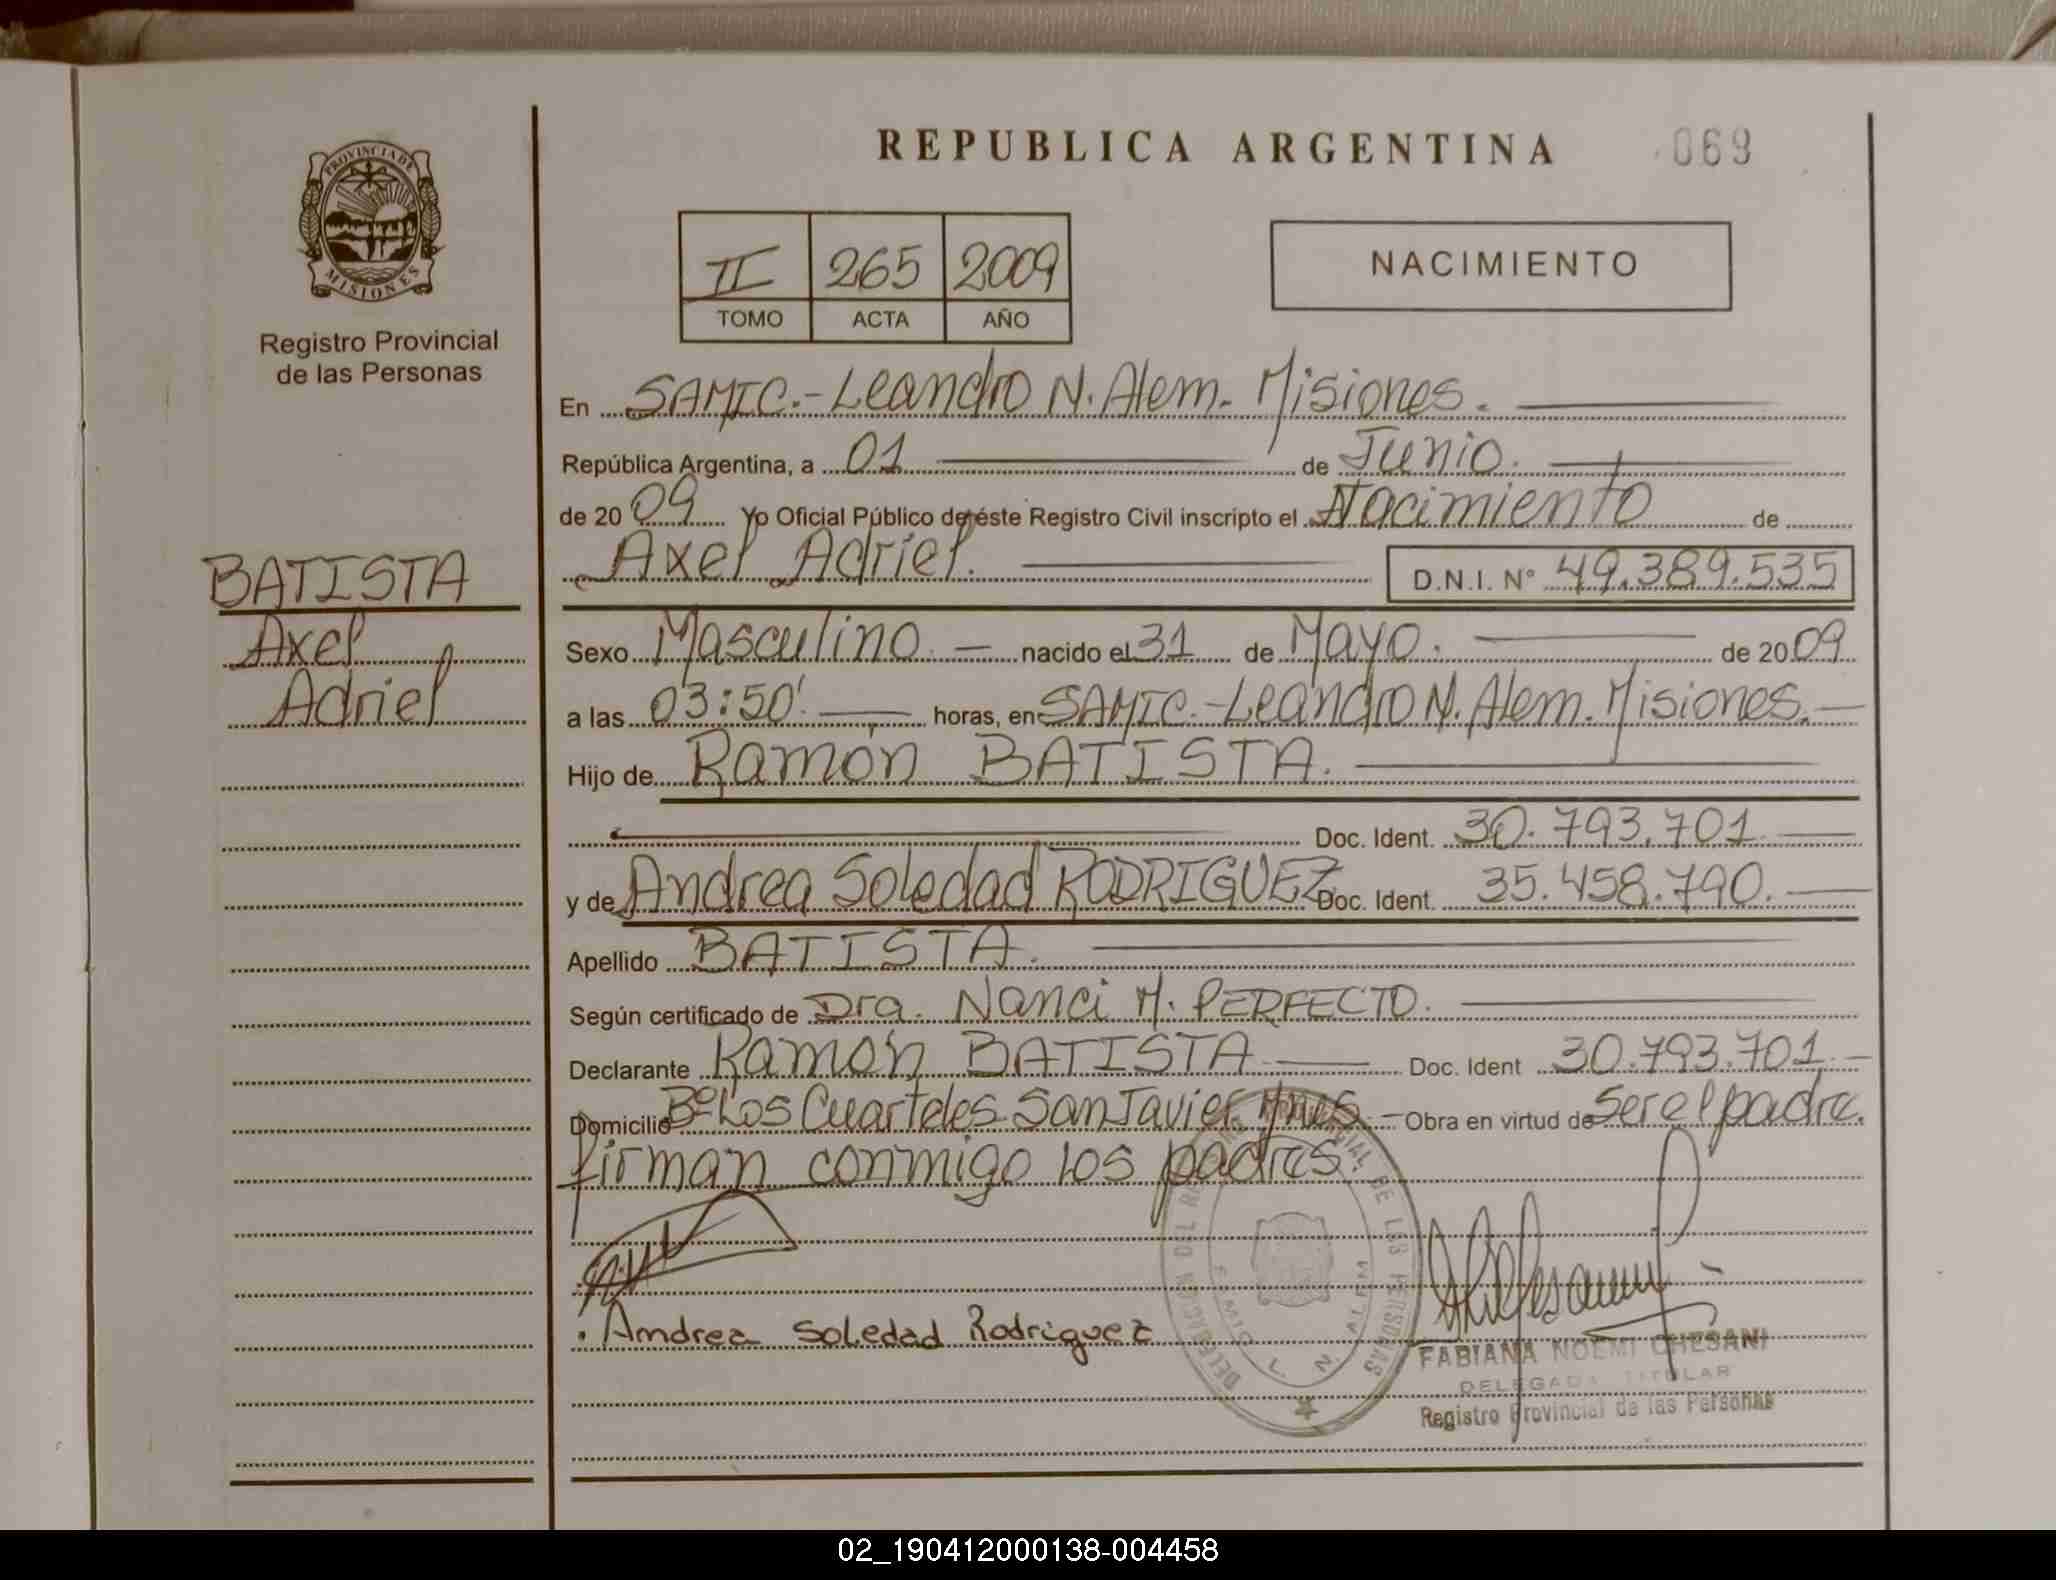 REPUBLICA ARGENTINA
069
PROVINCIA DE
MISIONES
Registro Provincial
de las Personas
II 265 2009
TOMO ACTA AÑO
NACIMIENTO
En SAMIC.-Leandro N. Alem. Misiones.
República Argentina, a 01 de Junio.
de 2009 Yo Oficial Público de éste Registro Civil inscripto el Nacimiento de
Axel Adriel. D.N.I. Nº 49.389.535
BATISTA
Axel
Adriel
Sexo Masculino. nacido el 31 de Mayo. de 2009
a las 03:50' horas, en SAMIC.-Leandro N. Alem. Misiones.
Hijo de Ramón BATISTA.
Doc. Ident. 30.793.701
y de Andrea Soledad RODRIGUEZ Doc. Ident. 35.458.790.
Apellido BATISTA.
Según certificado de Dra. Nanci M. PERFECTO.
Declarante Ramón BATISTA Doc. Ident 30.793.701.
Domicilio Bº Los Cuarteles San Javier Mnes. Obra en virtud de Ser el padre.
firman conmigo los padres.
Andrea Soledad Rodriguez
DELEGACION DEL REGISTRO PROVINCIAL DE LAS PERSONAS
SAMIC L. N. ALEM
FABIANA NOEMI CHESANI
DELEGADA TITULAR
Registro Provincial de las Personas
02_190412000138-004458